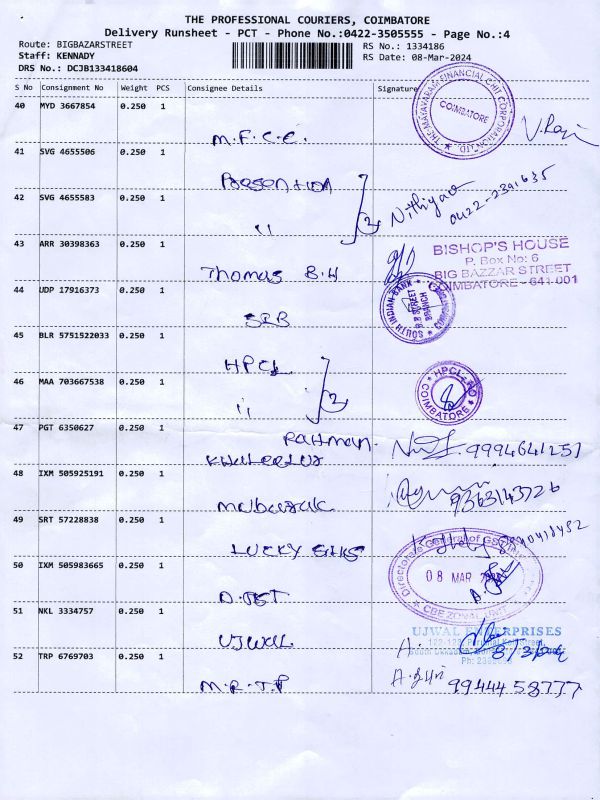 THE PROFESSIONAL COURIERS, COIMBATORE
Delivery Runsheet - PCT - Phone No.:0422-3505555 - Page No.:4
Route: BIGBAZARSTREET
RS No.: 1334186
Staff: KENNADY
RS Date: 08-Mar-2024
DRS No.: DCJB133418604
S No Consignment No Weight PCS Consignee Details Signature
40 MYD 3667854 0.250 1
M.F.C.C.
THE MAYAVARAM FINANCIAL CHIT CORPORATION LTD.
COIMBATORE
V.
41 SVG 4655506 0.250 1
42 SVG 4655583 0.250 1
"
2
Nithiya
0422-2391635
43 ARR 30398363 0.250 1
Thomas B.H
BISHOP'S HOUSE
P. Box No: 6
BIG BAZZAR STREET
COIMBATORE - 641 001
44 UDP 17916373 0.250 1
SIB
SOUTH INDIAN BANK
B.B STREET
BRANCH
45 BLR 5751522033 0.250 1
HPCL
46 MAA 703667538 0.250 1
"
2
HPCL-RO
COIMBATORE
47 PGT 6350627 0.250 1
Rahman.
9994641251
48 IXM 505925191 0.250 1
Mubarak
9363143726
49 SRT 57228838 0.250 1
LUCKY Silks
50 IXM 505983665 0.250 1
Directorate General of GST
08 MAR
CBE ZONAL UNIT
51 NKL 3334757 0.250 1
UJWAL
UJWAL ENTERPRISES
52 TRP 6769703 0.250 1
M.R.T.P
99444 58777